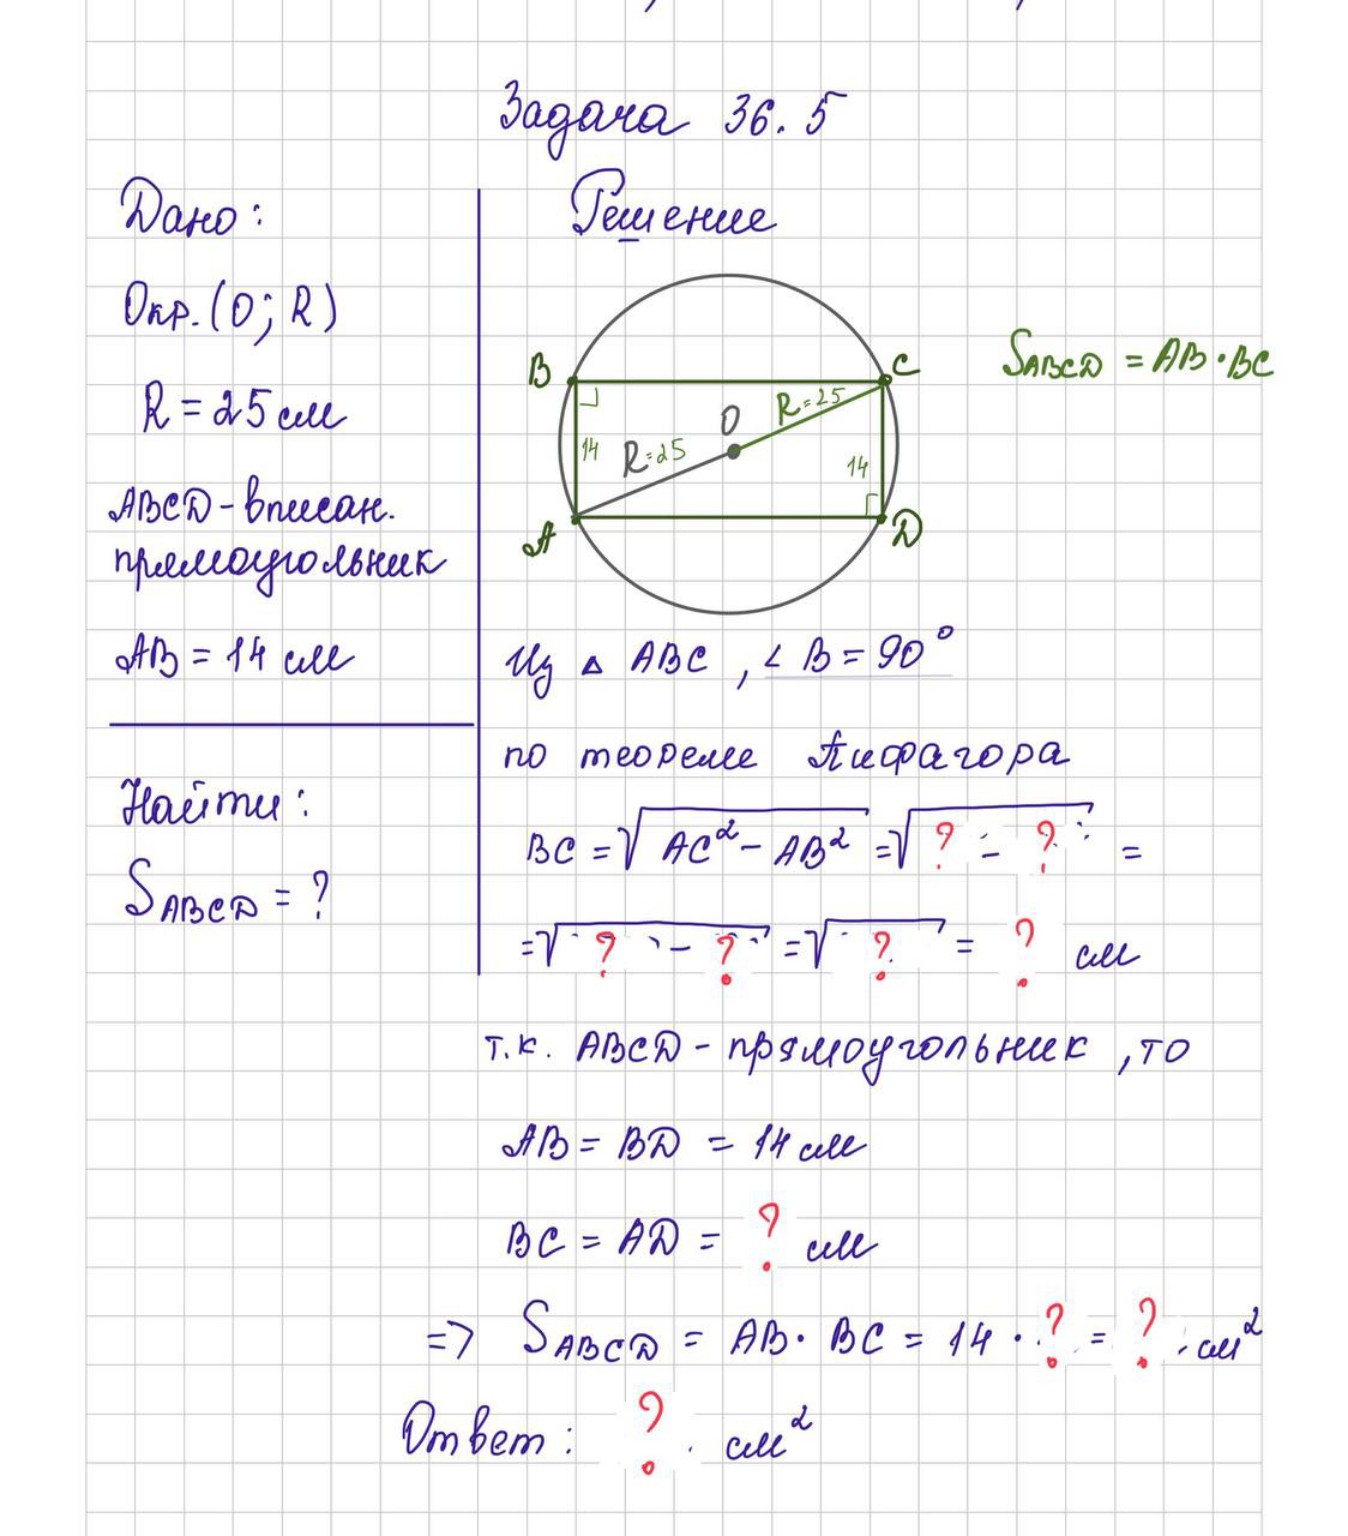 Задача 36.5
Дано:
Окр.(O; R)
R = 25 см
ABCD - вписан.
прямоугольник
AB = 14 см
Найти:
S_ABCD = ?
Решение
B
C
O
R=25
R=25
14
14
A
D
S_ABCD = AB·BC
Из △ ABC, ∠B = 90°
по теореме Пифагора
BC = √(AC² - AB²) = √(? - ?) =
= √(? - ?) = √? = ? см
т.к. ABCD - прямоугольник, то
AB = BD = 14 см
BC = AD = ? см
=> S_ABCD = AB · BC = 14 · ? = ? см²
Ответ: ? см²